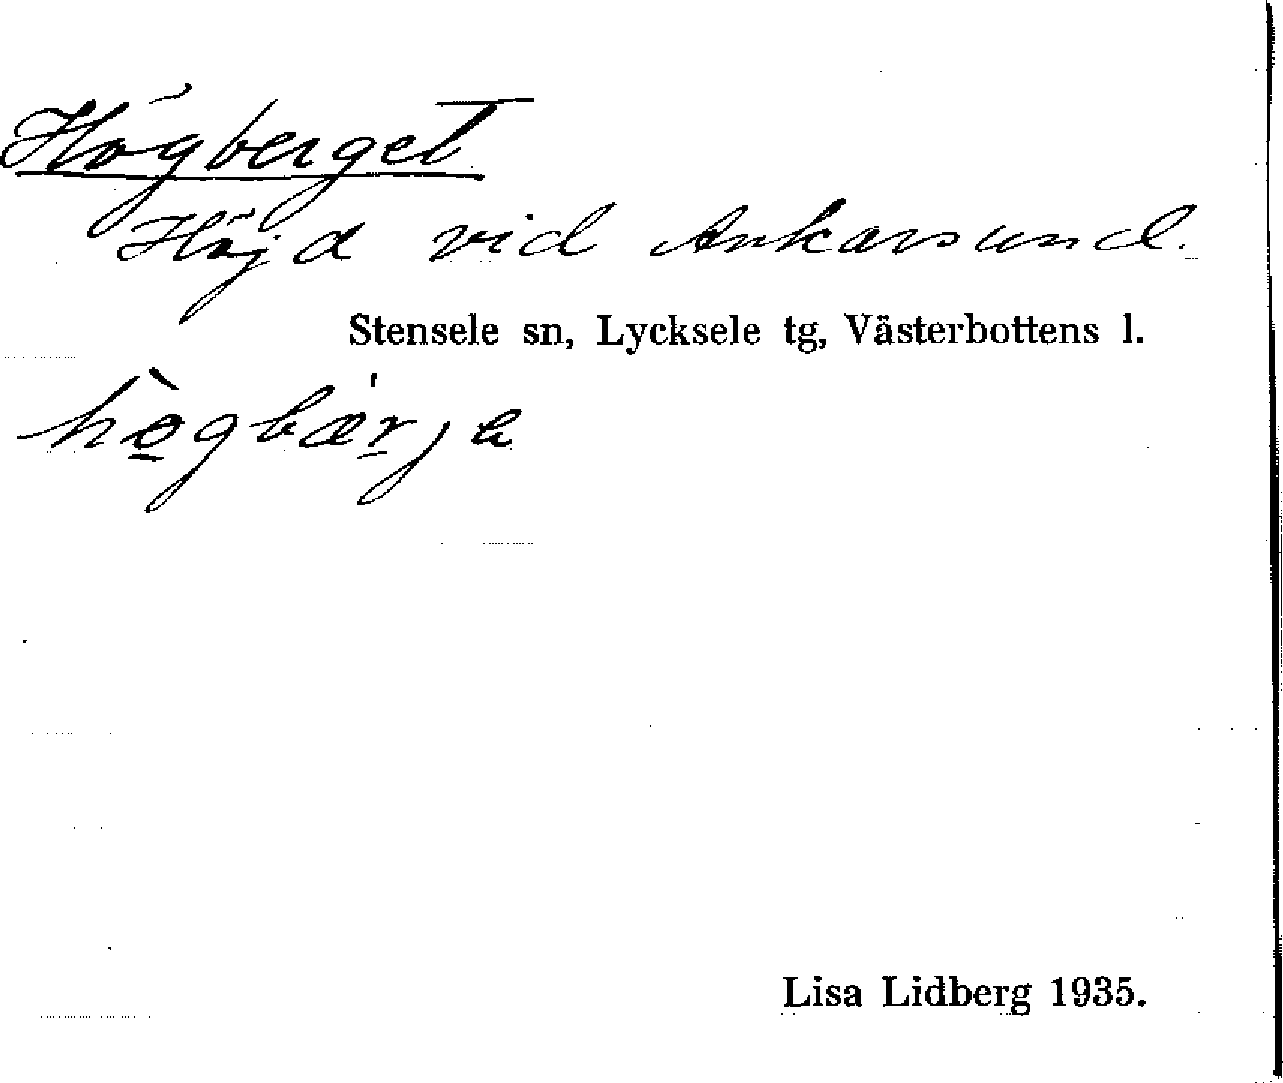 Högberget
Höjd vid Ankarsund.
Stensele sn, Lycksele tg, Västerbottens l.
hò̠gbæ̍r̠ja
Lisa Lidberg 1935.